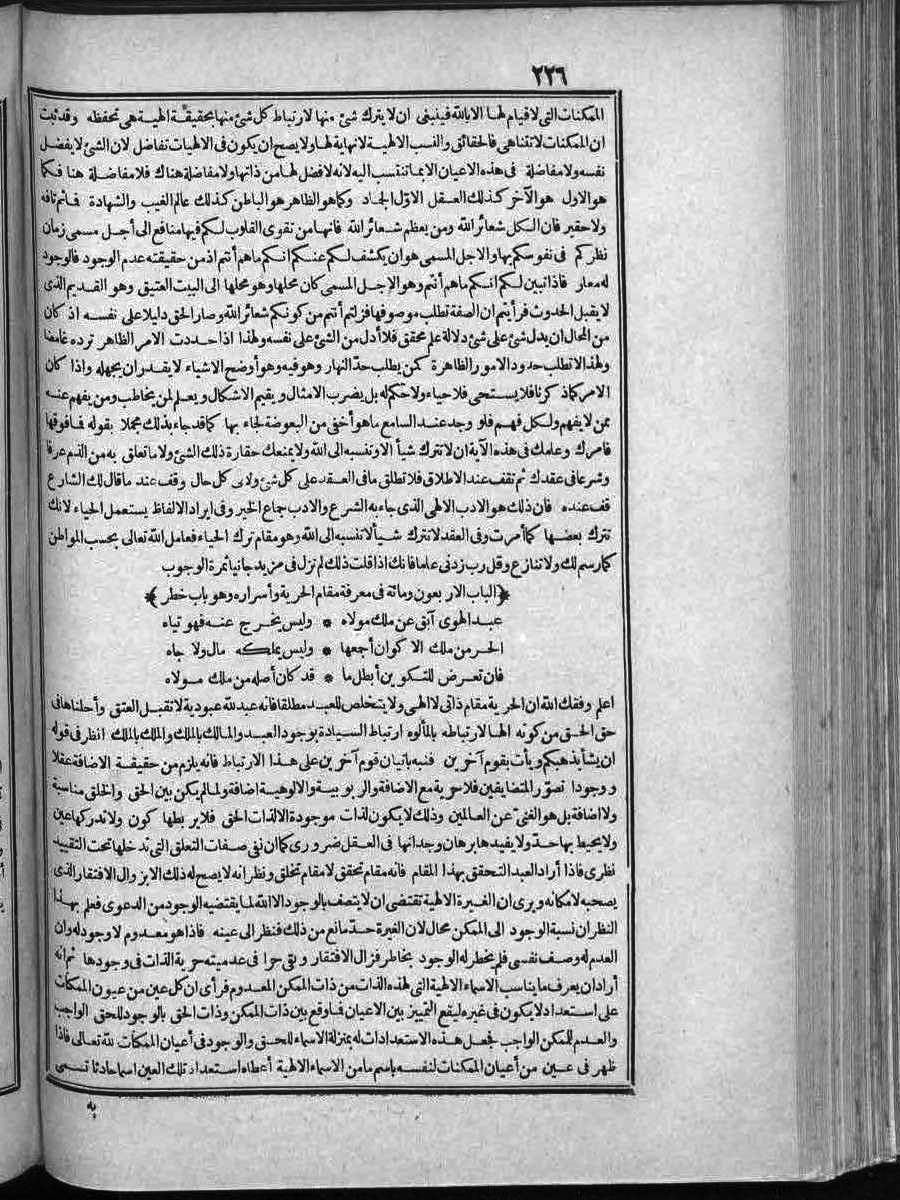 ٢٢٦
الممكنات التى لا قيام لها الا بالله فينبغى ان لا يترك شئ منها لارتباط كل شئ منها بحقيقة الهية هى تحفظه وقد ثبت
ان الممكنات لا تتناهى فالحقائق والنسب الالهية لا نهاية لها ولا يصح ان يكون فى الالهيات تفاضل لان الشئ لا يفضل
نفسه ولا مفاضلة فى هذه الاعيان الا بما تنتسب اليه لانه لا فضل لها من ذاتها ولا مفاضلة هناك فلا مفاضلة هنا فكما
هو الاول هو الآخر كذلك العقل الاوّل الجماد وكما هو الظاهر هو الباطن كذلك عالم الغيب والشهادة فائم تافه
ولا حقير فان الكل شعائر الله ومن يعظم شعائر الله فانها من تقوى القلوب لكم فيها منافع الى أجل مسمى زمان
نظركم فى نفوسكم بها والاجل المسمى هو ان يكشف لكم عنكم انكم ما هم أنتم اذ من حقيقته عدم الوجود فالوجود
له معار فاذا تبين لكم انكم ما هم أنتم وهو الاجل المسمى كان محلها وهو محلها الى البيت العتيق وهو القديم الذى
لا يقبل الحدوث فرأيتم ان الصفة تطلب موصوفها فزلتم أنتم من كونكم شعائر الله وصار الحق دليلا على نفسه اذ كان
من المحال ان يدل شئ على شئ دلالة علم محقق فلا أدل من الشئ على نفسه ولهذا اذا حددت الامر الظاهر ترده غامضا
ولهذا لا تطلب حدود الامور الظاهرة كمن يطلب حدّ النهار وهو فيه وهو أوضح الاشياء لا يقدر ان يجهله واذا كان
الامر كما ذكرنا فلا يستحى فلا حياء ولا حكم له بل يضرب الامثال ويقيم الاشكال ويعلم لمن يخاطب ومن يفهم عنه
ممن لا يفهم ولكل فهم فلو وجد عند السامع ما هو أخفى من البعوضة لجاء بها كما قد جاء بذلك مجملا بقوله فما فوقها
فامرك وعلمك فى هذه الآية ان لا تترك شيأ الا وتنسبه الى الله ولا يمنعك حقارة ذلك الشئ ولا ما تعلق به من الذم عرفا
وشرعا فى عقدك ثم تقف عند الاطلاق فلا تطلق ما فى العقد على كل شئ ولا فى كل حال وقف عند ما قال لك الشارع
قف عنده فان ذلك هو الادب الالهى الذى جاء به الشرع والادب جماع الخير وفى ايراد الالفاظ يستعمل الحياء لانك
تترك بعضها كما أمرت وفى العقد لا تترك شيأ لا تنسبه الى الله وهو مقام ترك الحياء فعامل الله تعالى بحسب المواطن
كما رسم لك ولا تنازع وقل رب زدنى علما فانك اذا قلت ذلك لم تزل فى مزيد جانيا ثمرة الوجوب
﴿الباب الاربعون ومائة فى معرفة مقام الحرية وأسراره وهو باب خطر﴾
عبد الهوى آبق عن ملك مولاه * وليس يخرج عنه فهو تياه
الحر من ملك الاكوان أجمعها * وليس يملكه مال ولا جاه
فان تعرض للتكوين أبطل ما * قد كان أصله من ملك مولاه
اعلم وفقك الله ان الحرية مقام ذاتى لا الهى ولا يتخلص للعبد مطلقا فانه عبد لله عبودية لا تقبل العتق وأحلناها فى
حق الحق من كونه الها لارتباطه بالمألوه ارتباط السيادة بوجود العبد والمالك بالملك والملك بالملك انظر فى قوله
ان يشأ يذهبكم ويأت بقوم آخرين فنبه باتيان قوم آخرين على هذا الارتباط فانه يلزم من حقيقة الاضافة عقلا
ووجودا تصوّر المتضايفين فلا حرية مع الاضافة والربوبية والالوهية اضافة ولما لم يكن بين الحق والخلق مناسبة
ولا اضافة بل هو الغنىّ عن العالمين وذلك لا يكون لذات موجودة الا لذات الحق فلا يربطها كون ولا تدركها عين
ولا يحيط بها حدّ ولا يفيدها برهان وجدانها فى العقل ضرورى كما ان نفى صفات التعلق التى تدخلها تحت التقييد
نظرى فاذا أراد العبد التحقق بهذا المقام فانه مقام تحقق لا مقام تخلق ونظر انه لا يصح له ذلك الا بزوال الافتقار الذى
يصحبه لامكانه ويرى ان الغيرة الالهية تقتضى ان لا يتصف بالوجود الا الله لما يقتضيه الوجود من الدعوى فعلم بهذا
النظر ان نسبة الوجود الى الممكن محال لان الغيرة حدّ مانع من ذلك فنظر الى عينه فاذا هو معدوم لا وجود له وان
العدم له وصف نفسى فلم يخطر له الوجود بخاطر فزال الافتقار وبقى حرا فى عدميته حرية الذات فى وجودها ثم انه
أراد ان يعرف ما يناسب الاسماء الالهية التى لهذه الذات من ذات الممكن المعدوم فرأى ان كل عين من عيون الممكنات
على استعداد لا يكون فى غيره ليقع التمييز بين الاعيان فما وقع بين ذات الممكن وذات الحق بالوجود للحق الواجب
والعدم للممكن الواجب فجعل هذه الاستعدادات له بمنزلة الاسماء للحق والوجود فى أعيان الممكنات لله تعالى فاذا
ظهر فى عين من أعيان الممكنات لنفسه باسم ما من الاسماء الالهية أعطاه استعداد تلك العين اسما حادثا تسمى
به